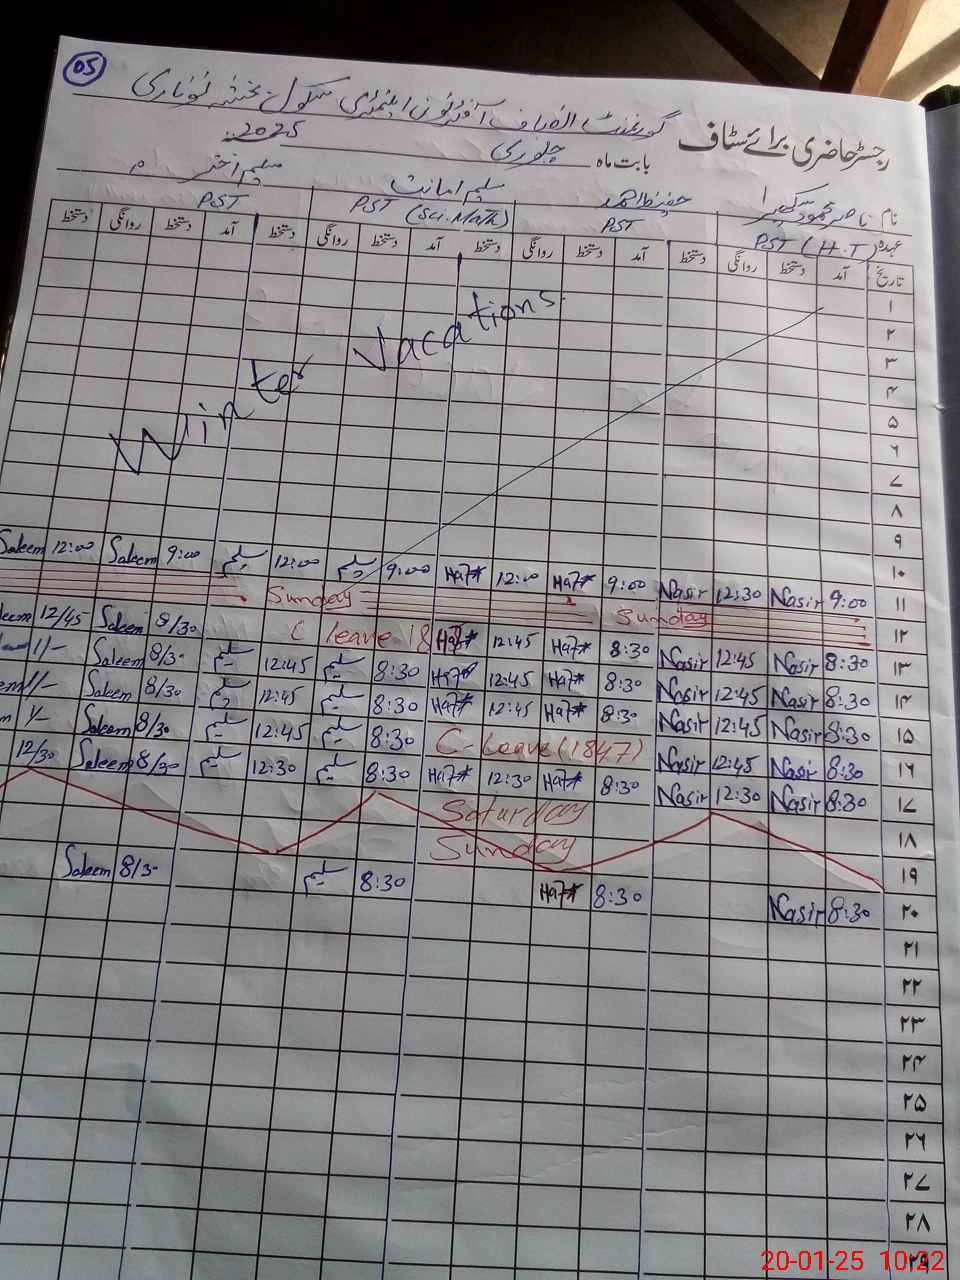 05
گورنمنٹ انصاف آفٹرنون ایلیمنٹری سکول بخشہ لوناری
رجسٹر حاضری برائے سٹاف
بابت ماہ جنوری 2025ء
نام ناصر محمود حفیظ احمد سلیم امانت سلیم اختر
عہدہ PST (H.T) PST PST (Sci.Math) PST
تاریخ آمد دستخط روانگی دستخط آمد دستخط روانگی دستخط آمد دستخط روانگی دستخط آمد دستخط روانگی دستخط
۱
۲
۳
۴
۵
۶
۷
۸
۹
Winter Vacations
۱۰
Saleem 12:00 Saleem 9:00 سلیم 12:00 سلیم 9:00 Haf 12:00 Haf 9:00 Nasir 12:30 Nasir 9:00 ۱۱
Sunday Sunday ۱۲
12/45 Saleem 8/30 C leave Haf 12:45 Haf 8:30 Nasir 12:45 Nasir 8:30 ۱۳
1/- Saleem 8/30 سلیم 12:45 سلیم 8:30 Haf 12:45 Haf 8:30 Nasir 12:45 Nasir 8:30 ۱۴
Saleem 8/30 سلیم 12:45 سلیم 8:30 Haf 12:45 Haf 8:30 Nasir 12:45 Nasir 8:30 ۱۵
Saleem 8/30 سلیم 12:45 سلیم 8:30 C-Leave (1847) Nasir 12:45 Nasir 8:30 ۱۶
12/30 Saleem 8/30 سلیم 12:30 سلیم 8:30 Haf 12:30 Haf 8:30 Nasir 12:30 Nasir 8:30 ۱۷
Saturday ۱۸
Sunday ۱۹
Saleem 8/30 سلیم 8:30 Haf 8:30 Nasir 8:30 ۲۰
۲۱
۲۲
۲۳
۲۴
۲۵
۲۶
۲۷
۲۸
۲۹
20-01-25 10:22